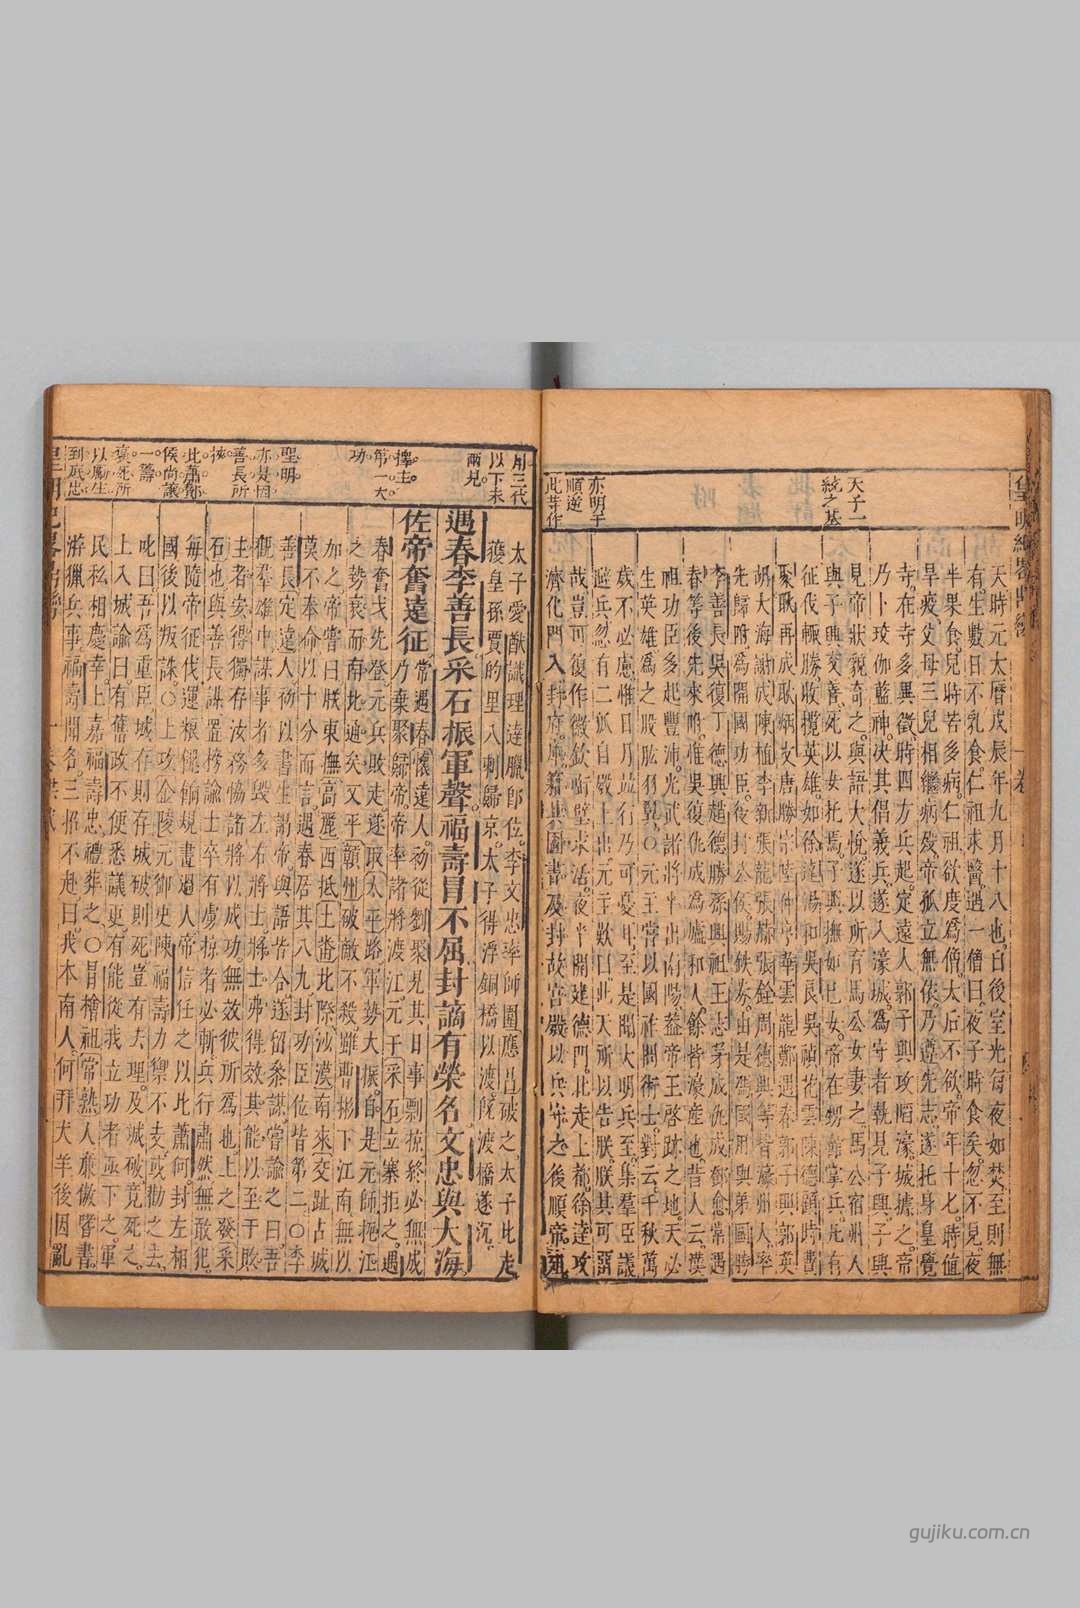 天子一
統之基
亦明于
順逆
此等作
天時元太曆戊辰年九月十八也自後室光每夜如焚至則無
有生數日不乳食仁祖求醫遇一僧曰夜子時食矣忽不見夜
半果食兒時苦多病仁祖欲度為僧太后不欲帝年十七時值
旱疫父母三兄相繼病歿帝孤立無依乃遵先志遂托身皇覺
寺在寺多異徵時四方兵起定遠人郭子興攻陷濠城據之帝
乃卜珓伽藍神決其倡義兵遂入濠城為守者執見子興子興
見帝狀貌奇之與語大悅遂以所有馬公女妻之馬公宿州人
與子興交善死以女托焉子興撫如己女帝在甥館掌兵凡有
征伐極勝收攬英雄如徐達湯和吳良吳禎花雲陳德顧時費
聚耿再成耿炳文唐勝宗陸仲亨華雲龍鄭遇春郭子興郭英
胡大海謝成陳植李新張龍張赫張銓周德興等皆濠州人率
先歸附為開國功臣後封公侯賜鉄券由是馮國用與弟國勝
李善長吳復丁德興趙德勝孫興祖王志茅成仇成曹愈常遇
春等後先來帷吳復仇成為廬和人餘皆濠產也昔人云漢
祖功臣多起豐沛光武諸將半出南陽蓋帝王啓跡之地天必
生英雄為之股肱羽翼○元主嘗以國祚問術士對云千秋萬
歲不必慮惟日月並行乃可憂耳至是聞大明兵至集羣臣議
避兵忽有二狐自殿上出元主歎曰此天所以告朕朕其可留
哉豈可復作徽欽啣璧求活夜半開建德門北走上都徐達攻
濟化門入封府庫籍與圖書及封故宮嚴以兵守之後順帝殂
用三代
以下未
兩見
擇主
第一大
功
聖明
亦是因
善長所
挾
比蕭鄼
侯尚讓
一籌
褒死所
以勵生
到底忠
太子愛猷識理達臘即位李文忠率師圍應昌破之太子北走
獲皇孫買的里八剌歸京太子得浮銅橋以渡旣渡橋遂沉
遇春李善長采石振軍聲福壽冒不屈封謫有榮名文忠與大海
佐帝奮遠征常遇春懷遠人初從劉聚見其日事剽掠終必無成
乃棄聚歸帝帝率諸將渡江元于采石立寨拒之遇
春奮戈先登元兵敗走遂取太平路軍勢大振自是元師扼江
之勢衰而南北通矣又平贛州破敵不殺雖曹彬下江南無以
加之帝嘗曰朕東撫高麗西抵土畨北際沙漠南來交趾占城
莫不奉命以十分而言遇春居其八九封功臣位皆第二○李
善長定遠人初以書生謁帝與語皆合遂留參謀嘗諭之曰吾
觀羣雄中謀事者多毀左右將士將士弗得效其能以至于敗
主者安得獨存汝務恊諸將以成功無效彼所為也上之發采
石也與善長謀置榜諭士卒有虜掠者必斬兵行肅然無敢犯
毎隨帝征伐運粮餉規畫過人帝信任之以比蕭何封左相
國後以叛誅○上攻金陵元御史陳福壽力禦不支或勸之去
叱曰吾為重臣城存則存城破則死豈有去理及城破竟死之
上入城諭曰有舊政不便悉議更有能從我立功者亟下之軍
民私相慶幸上嘉福壽忠禮葬之○冒檜祖常熟人亷傲嗜書
游獵兵事福壽聞名三招不赴曰我本南人何拜犬羊後因亂
gujiku.com.cn